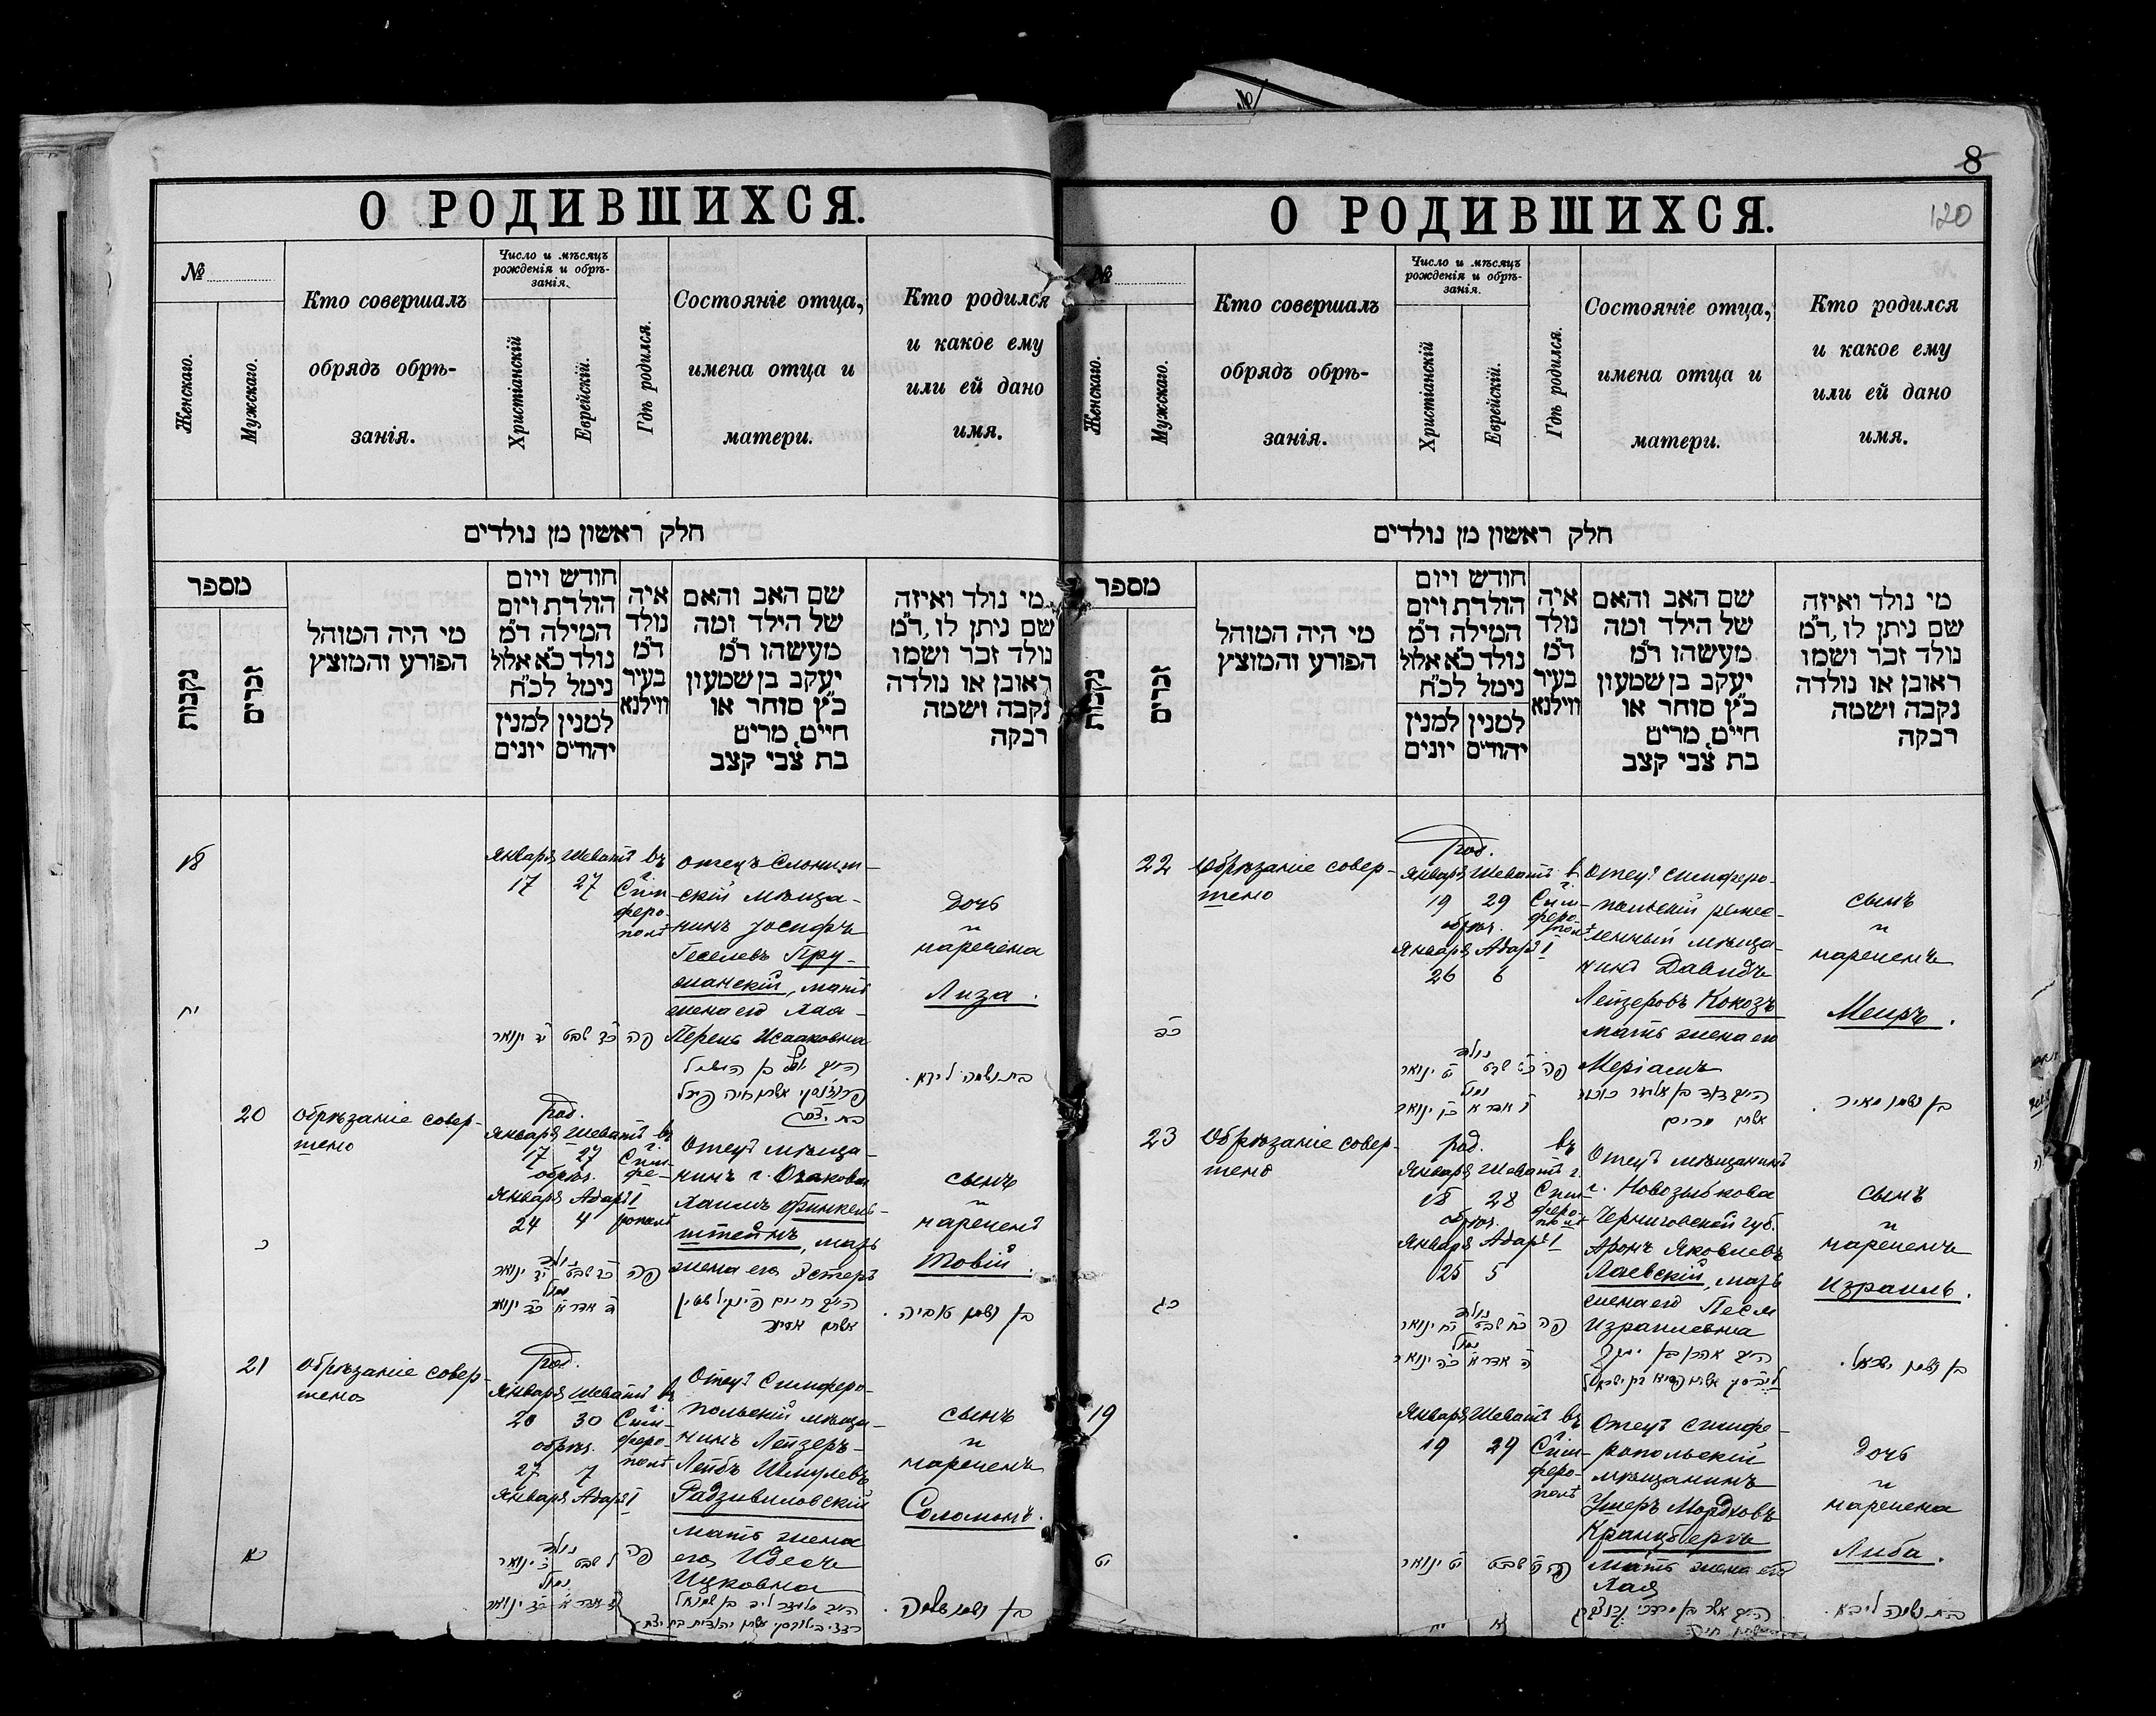 О РОДИВШИХСЯ.
№
Женскаго.
Мужскаго.
Кто совершалъ
обрядъ обрѣ-
занія.
Число и мѣсяцъ
рожденія и обрѣ-
занія.
Христіанскій
Еврейскій.
Гдѣ родился.
Состояніе отца,
имена отца и
матери.
Кто родился
и какое ему
или ей дано
имя.
חלק ראשון מן נולדים
מספר
נקבות
זכרים
מי היה המוהל
הפורע והמוצץ
חודש ויום
הולדת ויום
המילה ד״מ
נולד כ״א אלול
ניטל לכ״ח
למנין יונים
למנין יהודים
איה
נולד
ד״מ
בעיר
ווילנא
שם האב והאם
של הילד ומה
מעשהו ד״מ
יעקב בן שמעון
כ״ץ סוחר או
חייט מרים
בת צבי קצב
מי נולד ואיזה
שם ניתן לו, ד״מ
נולד זכר ושמו
ראובן או נולדה
נקבה ושמה
רבקה
18
Января Шеватъ въ
17 27 г. Сим-
феро-
полѣ
Отецъ Слоним-
скій мѣща-
нинъ Іосифъ
Геселевъ Пру-
жанскій, мать
жена его Хая-
Перель Исааковна
Дочь
и
наречена
Лиза.
יח
20
Обрѣзаніе совер-
шено
род.
Января Шеватъ въ
17 27 г. Сим-
обрѣз. фе-
Января Адаръ I
24 4 рополѣ
Отецъ мѣща-
нинъ г. Очакова
Хаимъ Финкель-
штейнъ, мать
жена его Эстеръ
сынъ
и
нареченъ
Товій.
כ
בן ושמו טוביה.
21
Обрѣзаніе совер-
шено
род.
Января Шеватъ въ
20 30 г. Сим-
обрѣз. феро-
27 7 полѣ
Января Адаръ I
Отецъ Симферо-
польскій мѣща-
нинъ Лейзеръ-
Лейбъ Шмулевъ
Радзивиловскій
мать жена
его Идесъ
Ицковна
сынъ
и
нареченъ
Соломонъ.
כא
בן ושמו שלמה.
8
120
О РОДИВШИХСЯ.
№
Женскаго.
Мужскаго.
Кто совершалъ
обрядъ обрѣ-
занія.
Число и мѣсяцъ
рожденія и обрѣ-
занія.
Христіанскій
Еврейскій.
Гдѣ родился.
Состояніе отца,
имена отца и
матери.
Кто родился
и какое ему
или ей дано
имя.
חלק ראשון מן נולדים
מספר
נקבות
זכרים
מי היה המוהל
הפורע והמוצץ
חודש ויום
הולדת ויום
המילה ד״מ
נולד כ״א אלול
ניטל לכ״ח
למנין יונים
למנין יהודים
איה
נולד
ד״מ
בעיר
ווילנא
שם האב והאם
של הילד ומה
מעשהו ד״מ
יעקב בן שמעון
כ״ץ סוחר או
חייט מרים
בת צבי קצב
מי נולד ואיזה
שם ניתן לו, ד״מ
נולד זכר ושמו
ראובן או נולדה
נקבה ושמה
רבקה
22
Обрѣзаніе совер-
шено
род.
Января Шеватъ в
19 29 г. Сим-
обрѣз. феро-
полѣ
Января Адаръ I
26 6
Отецъ Симферо-
польскій ремес-
ленный мѣща-
нинъ Давидъ
Лейзеровъ Кокозъ
мать жена его
Меріамъ
сынъ
и
нареченъ
Меиръ.
כב
בן ושמו מאיר.
23
Обрѣзаніе совер-
шено
род. въ
Января Шеватъ г.
18 28 Сим-
обрѣз. феро-
полѣ
Января Адаръ I
25 5
Отецъ мѣщанинъ
г. Новозыбкова
Черниговской губ.
Аронъ Яковлевъ
Лаевскій, мать
жена его Песя
Израилевна
сынъ
и
нареченъ
Израиль.
כג
בן ושמו ישראל.
19
Января Шеватъ въ
19 29 г. Сим-
феро-
полѣ
Отецъ симфе-
ропольскій
мѣщанинъ
Ушеръ Мордковъ
Кранцбергъ
мать жена его
Хая
Дочь
и
наречена
Либа.
יט
בת ושמה ליבא.